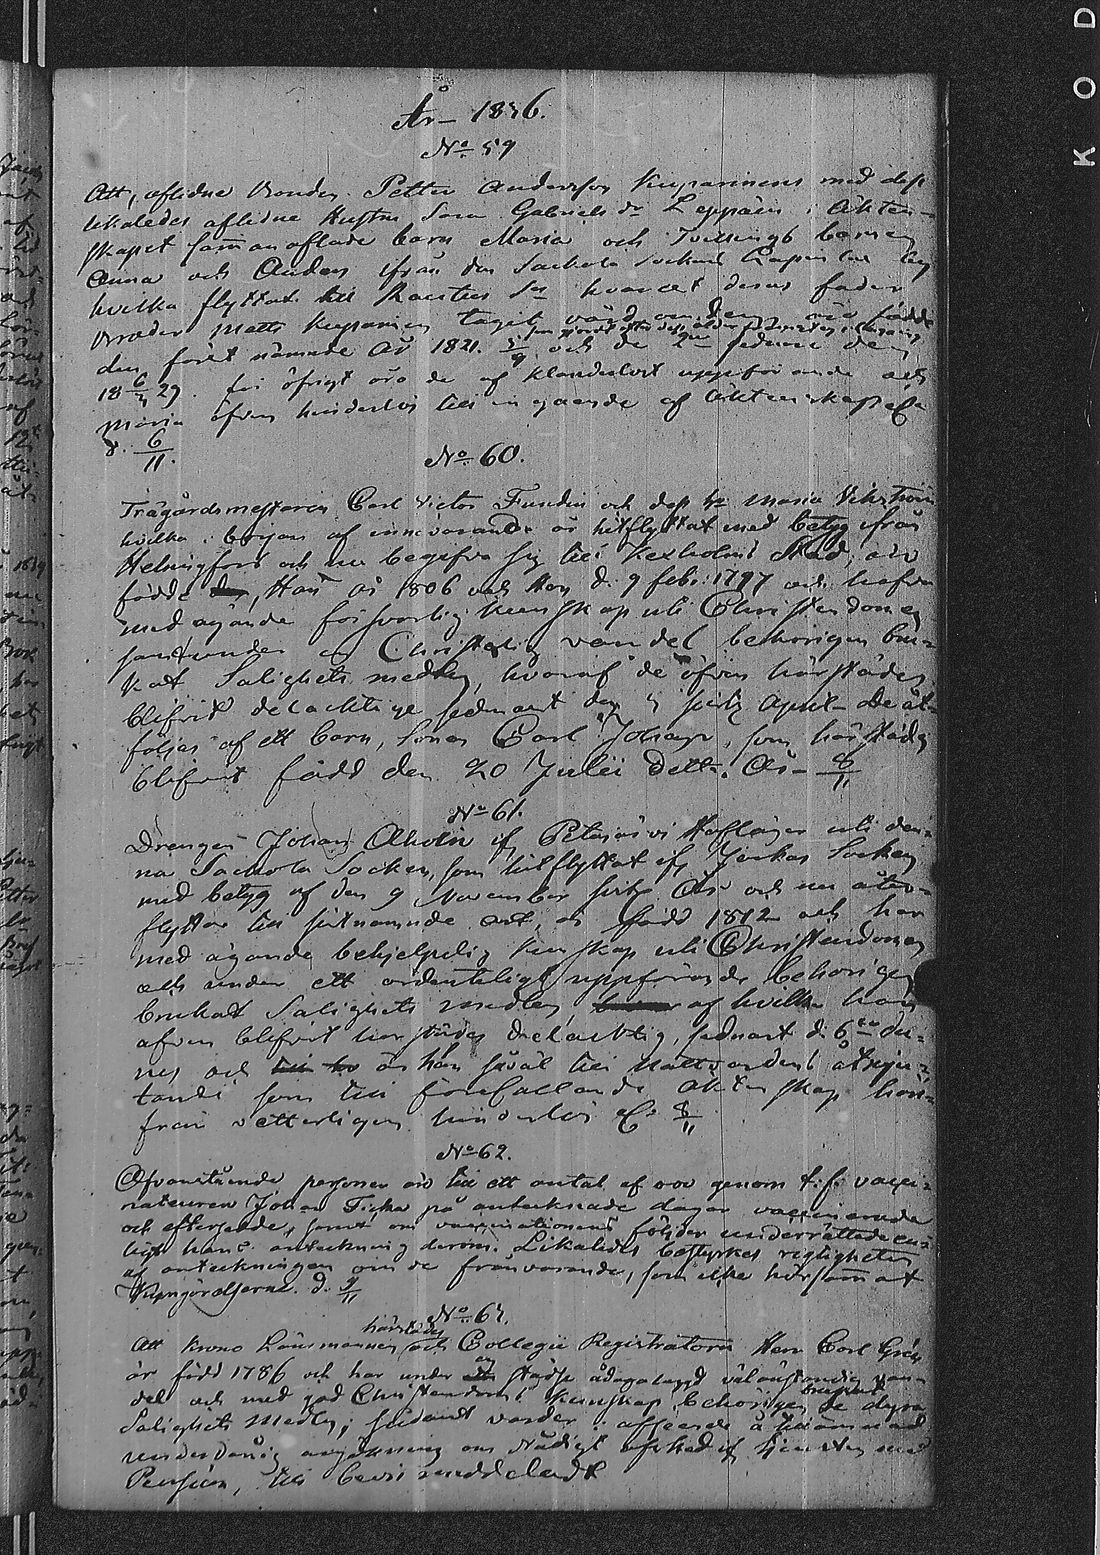 År 1836.
No 59
Att, aflidne Bonden Petter Andersson Kuparinens med dess
likaledes aflidne Hustru Sara Gabrielsdr Leppäin i Äkten-
skapet samanaflade barn Maria och Tvillings barnen
Anna och Anders ifrån den Sackola Sockens Capell
hvilka flyttat till Rautus Sn hvarest deras fader
broder Matts Kuparinen tagit vård om dem, äro födde
den förstnämnde År 1821. och de 2ne sednare den
18 29. för öfrigt äro de af klanderlost uppförande och
Maria äfven hinderlös till ingående af Äktenskap &c
d. 6/11.
No 60.
Trägårdsmästaren Carl Victor Fundin och dess h: Maria Vikström
hvilka i början af innevarande år hitflyttat med betyg ifrån
Helsingfors och nu begifva sig till Kexholms Stad, äro
födde Han år 1806 och Hon d. 9 febr: 1797 och hafva
med ägande försvarlig kunskap uti Christendomen
samt under en Christelig vandel behörigen bru-
kat Salighets medlen, hvaraf de äfven härstädes
blifvit delacktige sednast den sistl. April. De åt-
följas af ett barn, Sonen Carl Johan, som härstädes
blifvit född den 20 Julii detta År 8/11
No 61.
Drengen Johan Aholin if. Petäjärvi Hofläger uti den-
na Sackola Socken, som hitflyttat if. Jockas Socken
med betyg af den 9 November sistl. År och nu åter-
flyttar till sistnämnde ort, är född 1812 och har
med ägande behjelpelig kunskap uti Christendomen
och under ett ordenteligt uppförande behörigen
brukat Salighets medlen, af hvilka han
äfven blifvit härstädes delacktig, sednast d. 6 Ju-
nii och är han såväl till Nattvardens åtnju-
tande som till förefallande äktenskap här-
från vetterligen hinderlös &c 8/11
No 62.
Ofvanstående personer äro till ett antal af genom t.f. vacci-
nateuren Johan Ticka på antecknade dagar vaccinerade
och eftersedde, samt om vaccinationens följder underrättade en-
ligt hans anteckning derom. Likaledes bestyrkes rigtigheten
af anteckningen om de frånvarande, som icke hörsammat
Kungörelserne. d. 9/11
No 63.
Att Krono Länsmannen härstädes och Collegii Registratorn Herr Carl
är född 1786 och har under en städse ådagalaggd välanständig van-
del och med god Christendoms kunskap behörigen brukat de dyra
Salighets Medlen; sådant varder i afseende å
underdånig ansökning om Nådigt afsked if. tjensten med
Pension, till bevis meddeladt